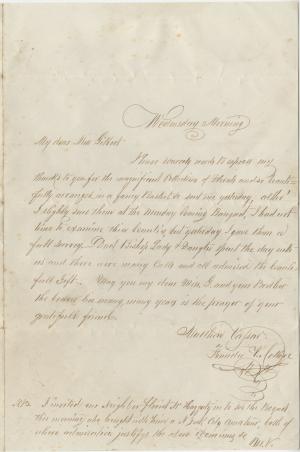 Wednesday Morning
My dear Miss Gilbert
I have scarcely words to express my
thanks to you for the magnificent Collection of Florals and so beauti-
fully arranged in a fancy Basket & sent me yesterday, altho'
I slightly saw them at the Monday Evening Banquet, I had not
time to examine their beauties, but yesterday I gave them a
full survey. Doct Bishop Lady & Daughter spent the day with
us and there were many Calls and all admired the beauti-
full Gift. May you my dear Miss G. and your Brother
the bearer live many many years is the prayer of your
gratefull friend
Matthew Vassar
Founder V. College
N.B. I invited our Neighbor Friend to see the Bouquet
this morning who brought with him a N York City Amateur, both of
whose admiration justifys the above
M.V.